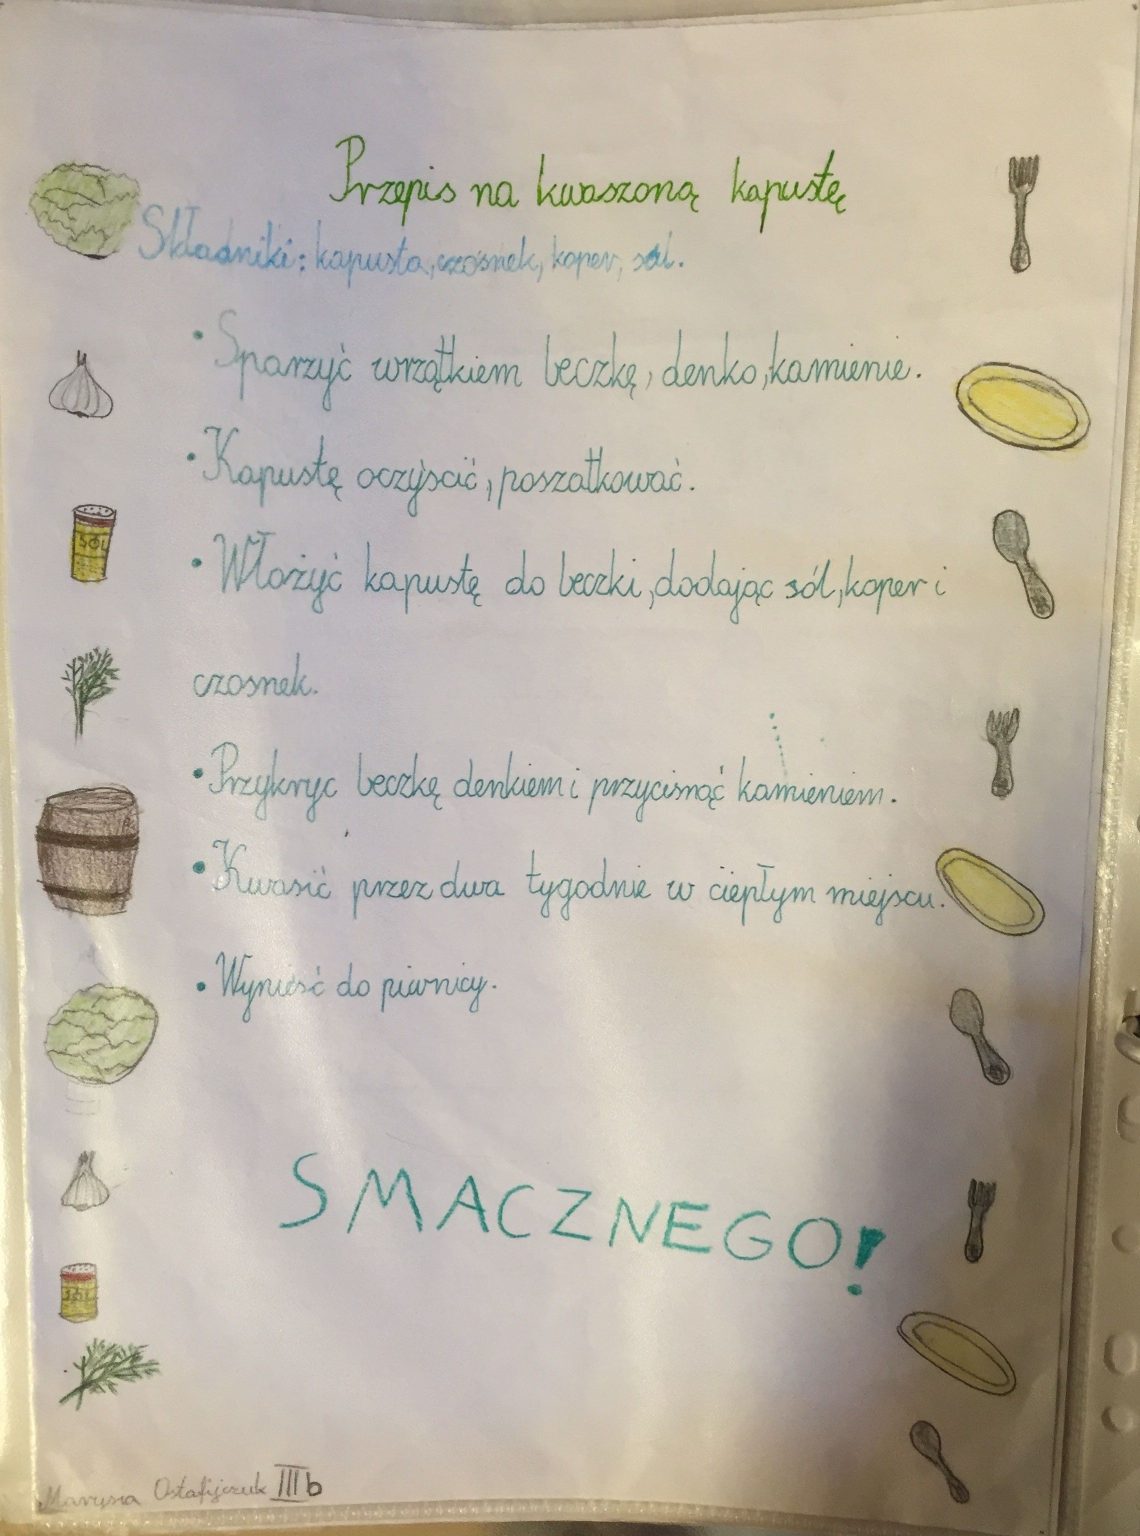 Przepis na kwaszoną kapustę
Składniki: kapusta, czosnek, koper, sól.
• Sparzyć wrzątkiem beczkę, denko, kamienie.
• Kapustę oczyścić, poszatkować.
• Włożyć kapustę do beczki, dodając sól, koper i
czosnek.
• Przykryc beczkę denkiem i przycisnąć kamieniem.
• Kwasić przez dwa tygodnie w ciepłym miejscu.
• Wynieść do piwnicy.
SMACZNEGO!
SÓL
SÓL
Marysia Ostafijczuk III b